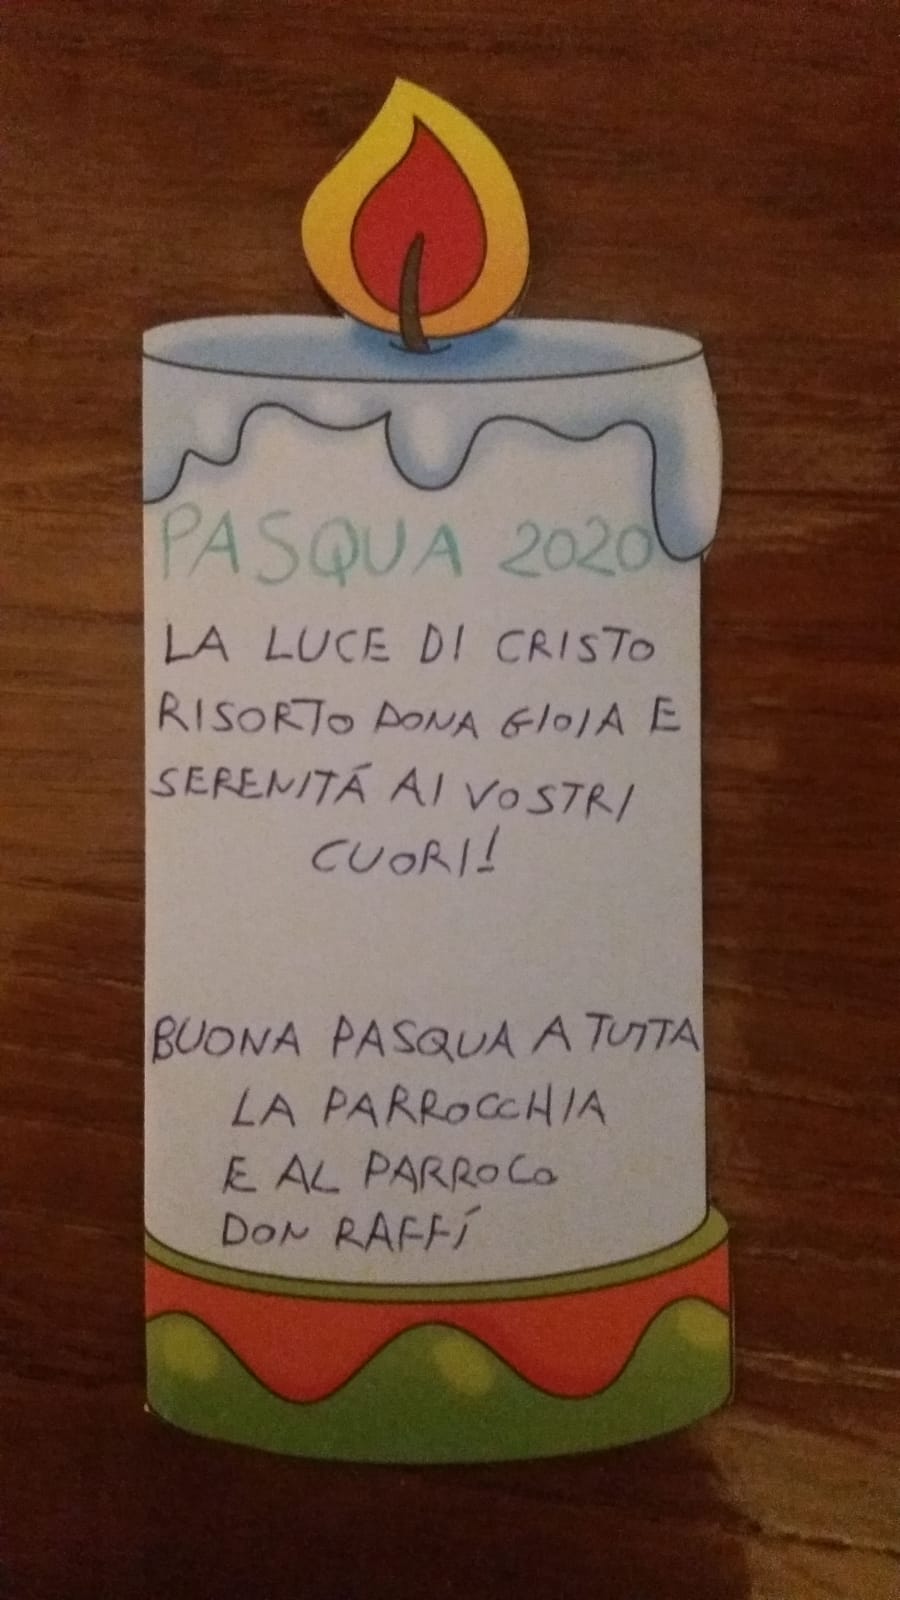 PASQUA 2020
LA LUCE DI CRISTO
RISORTO DONA GIOIA E
SERENITÁ AI VOSTRI
CUORI!
BUONA PASQUA A TUTTA
LA PARROCCHIA
E AL PARROCO
DON RAFFÍ